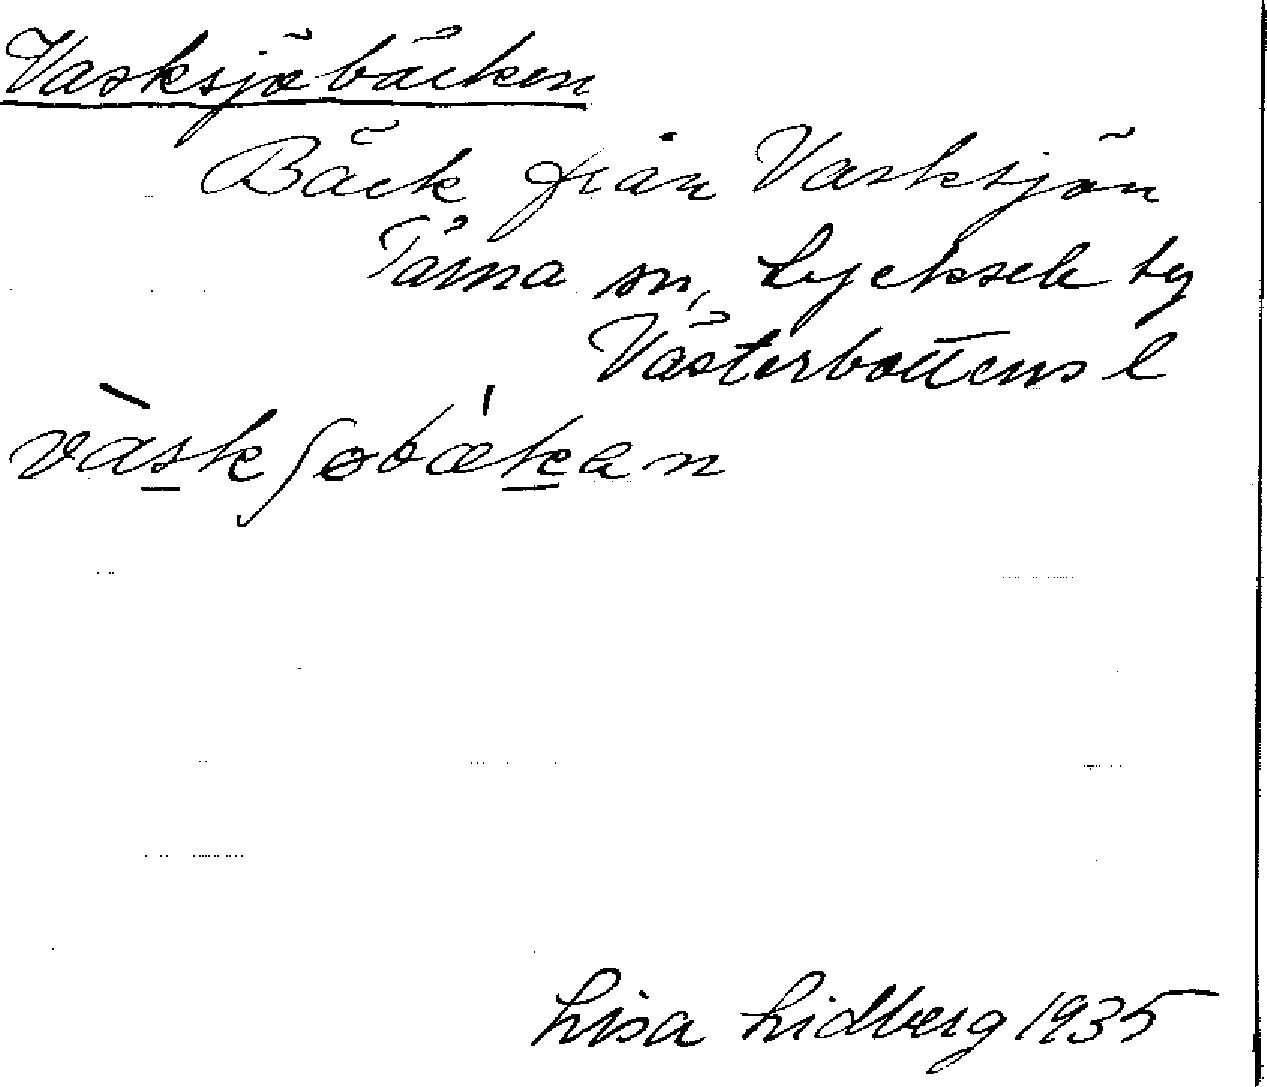 Vasksjöbäcken
Bäck från Vasksjön
Tärna sn, Lycksele tg
Västerbottens l
vàskʃøbæ'kan
Lisa Lidberg 1935